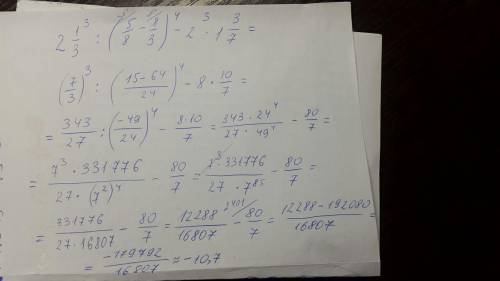 2 1/3 ³ : (5/8 - 8/3)⁴ - 2³ · 1 3/7 =
(7/3)³ : (15-64/24)⁴ - 8 · 10/7 =
= 343/27 : (-49/24)⁴ - 8·10/7 = 343·24⁴/27·49⁴ - 80/7 =
= 7³·331776/27·(7²)⁴ - 80/7 = 331776/27·7⁸⁵ - 80/7 =
= 331776/27·16807 - 80/7 = 12288/16807 - 80/7 = 12288-192080/16807 =
= -179792/16807 ≈ -10,7